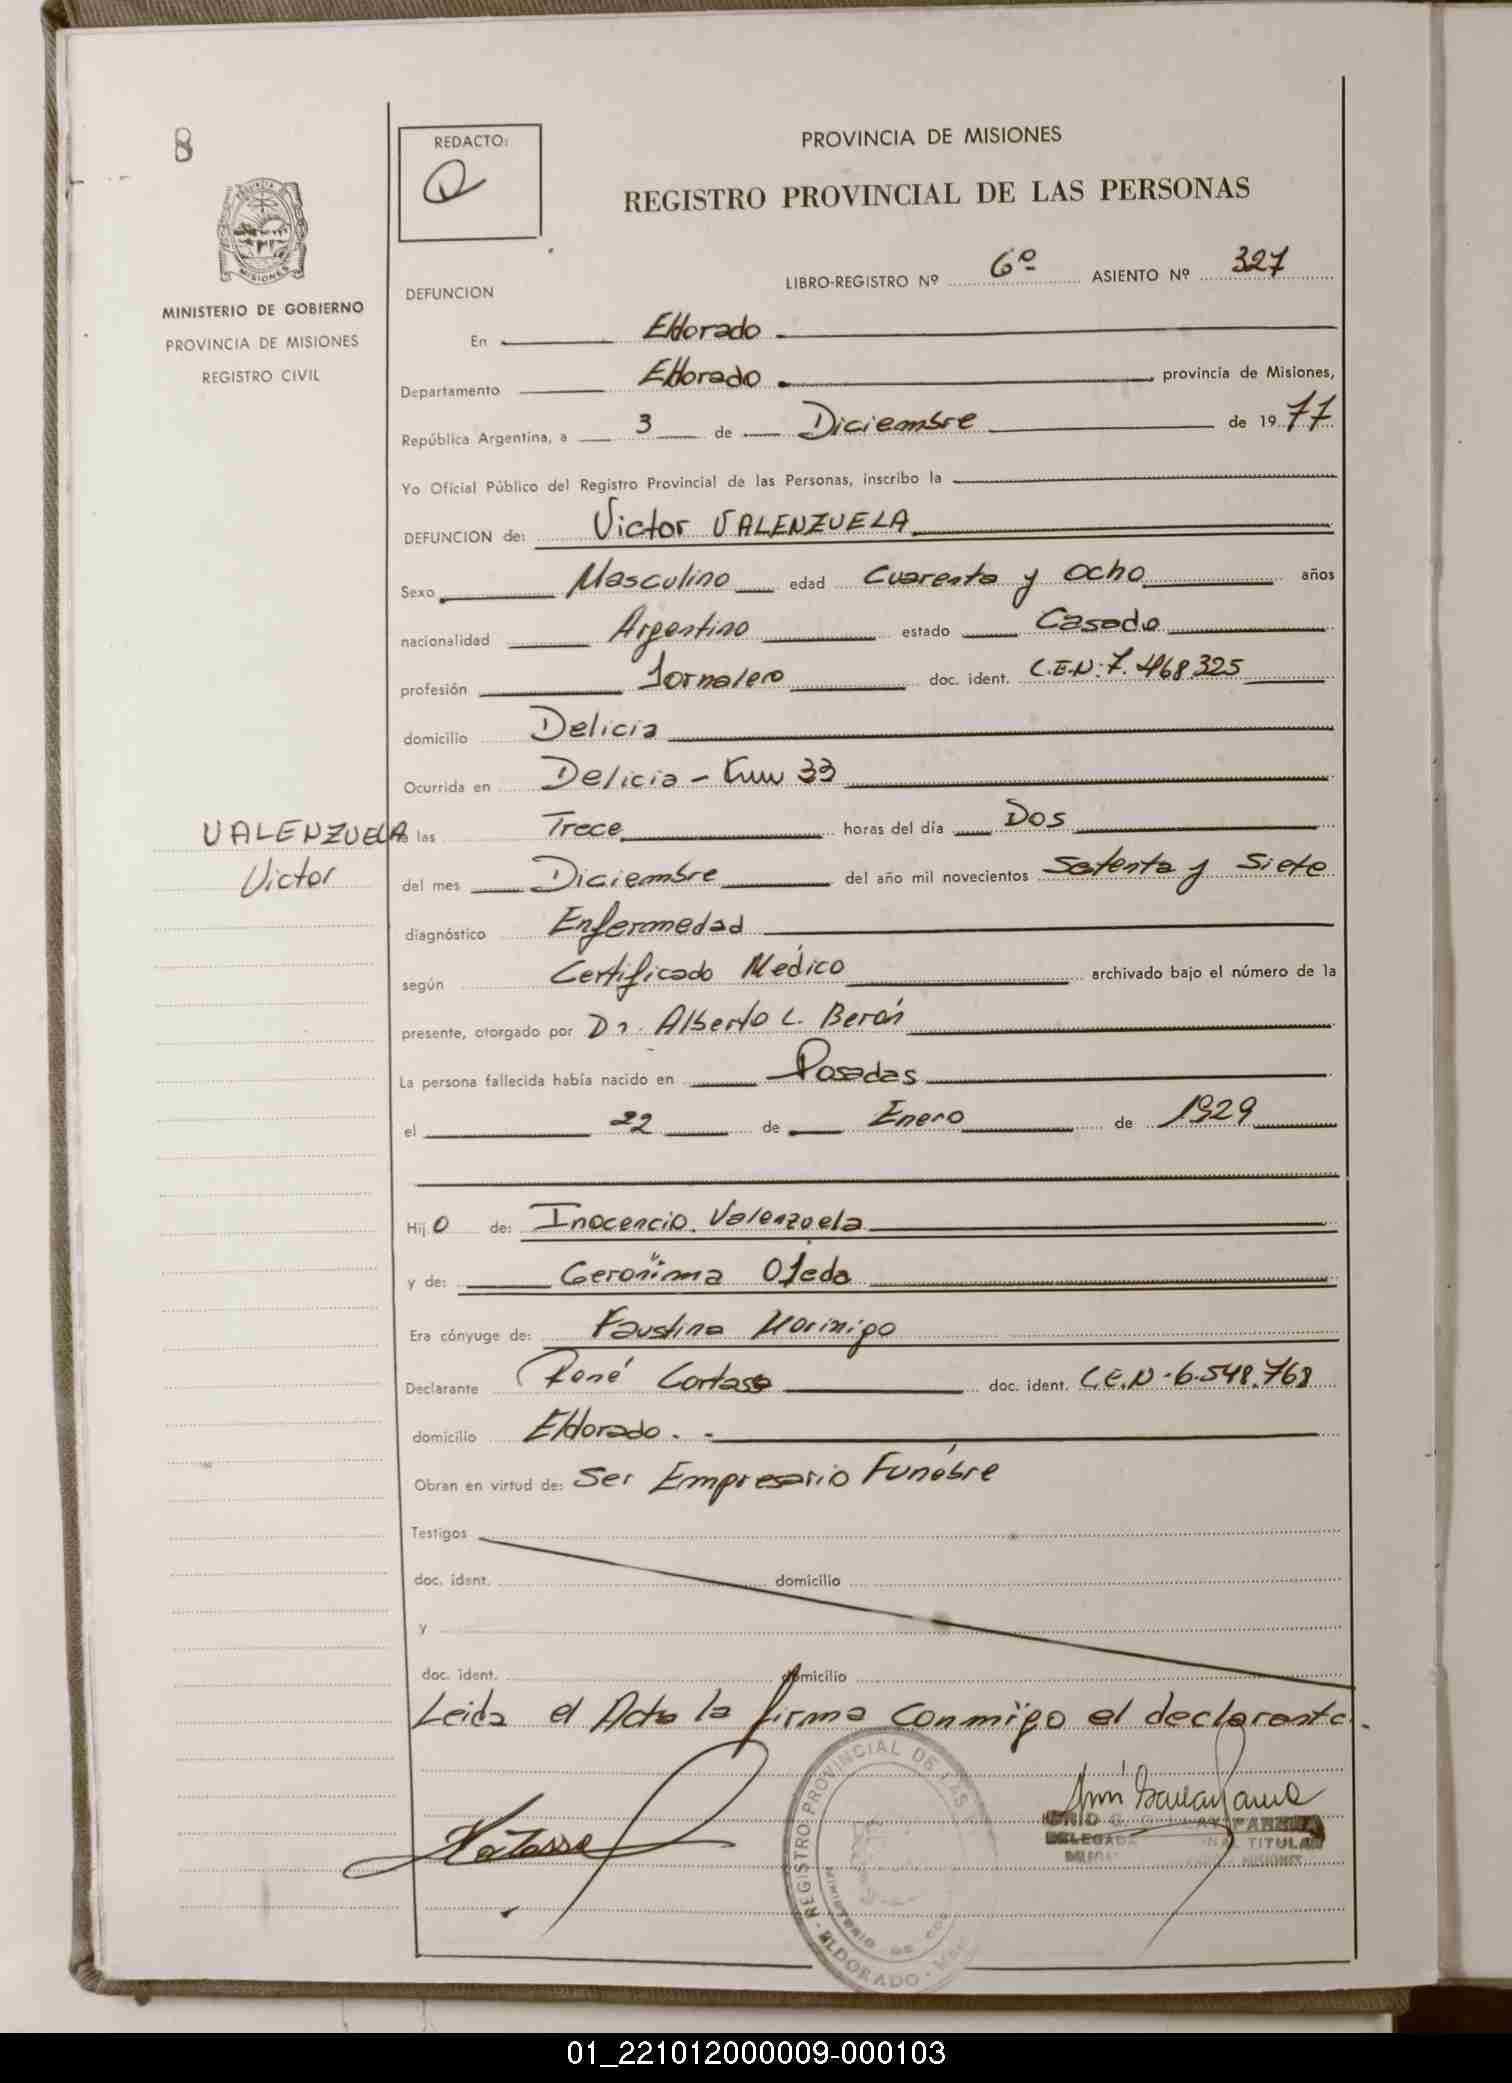 8
REDACTO:
PROVINCIA DE MISIONES
REGISTRO PROVINCIAL DE LAS PERSONAS
MINISTERIO DE GOBIERNO
PROVINCIA DE MISIONES
REGISTRO CIVIL
LIBRO-REGISTRO Nº 6º ASIENTO Nº 327
DEFUNCION
En Eldorado
Departamento Eldorado provincia de Misiones,
República Argentina, a 3 de Diciembre de 1977
Yo Oficial Público del Registro Provincial de las Personas, inscribo la
DEFUNCION de: Victor VALENZUELA
Sexo Masculino edad Cuarenta y Ocho años
nacionalidad Argentino estado Casado
profesión Jornalero doc. ident. C.E.N:7.468.325
domicilio Delicia
Ocurrida en Delicia - Km 33
VALENZUELA
Victor
las Trece horas del día Dos
del mes Diciembre del año mil novecientos Setenta y Siete
diagnóstico Enfermedad
según Certificado Médico archivado bajo el número de la
presente, otorgado por Dr. Alberto L. Berón
La persona fallecida había nacido en Posadas
el 22 de Enero de 1929
Hijo de: Inocencio Valenzuela
y de: Geronima Ojeda
Era cónyuge de: Faustina Morinigo
Declarante René Cortase doc. ident. C.E.N-6.548.768
domicilio Eldorado. -
Obran en virtud de: Ser Empresario Funébre
Testigos
doc. ident. domicilio
y
doc. ident. domicilio
Leida el Acta la firma conmigo el declarante.
REGISTRO PROVINCIAL DE LAS
MINISTERIO DE GOB
ELDORADO
TITULAR
MISIONES
01_221012000009-000103